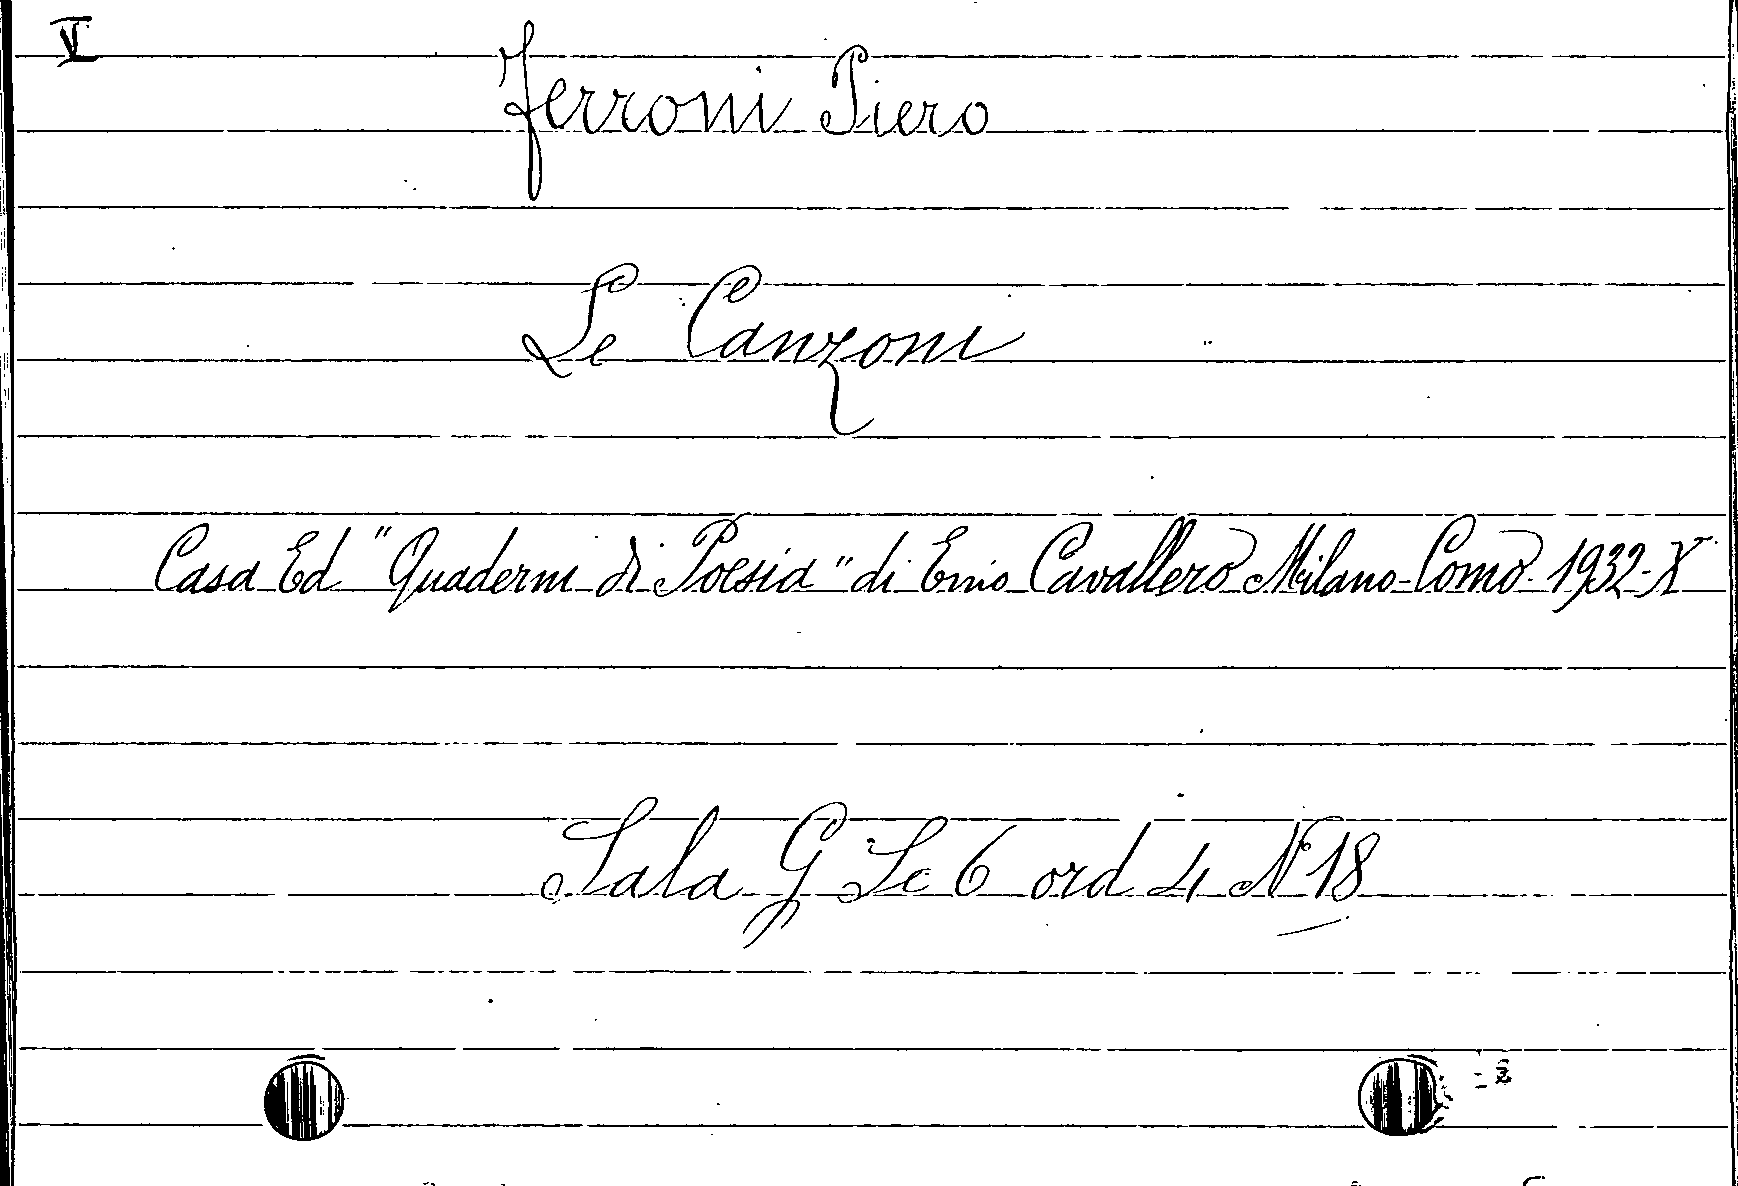 V
Ferroni Piero
Le Canzoni
Casa Ed "Quaderni di Poesia" di Emo Cavallero Milano-Como-1932-X
Sala G Sc 6 ord 4 N° 18